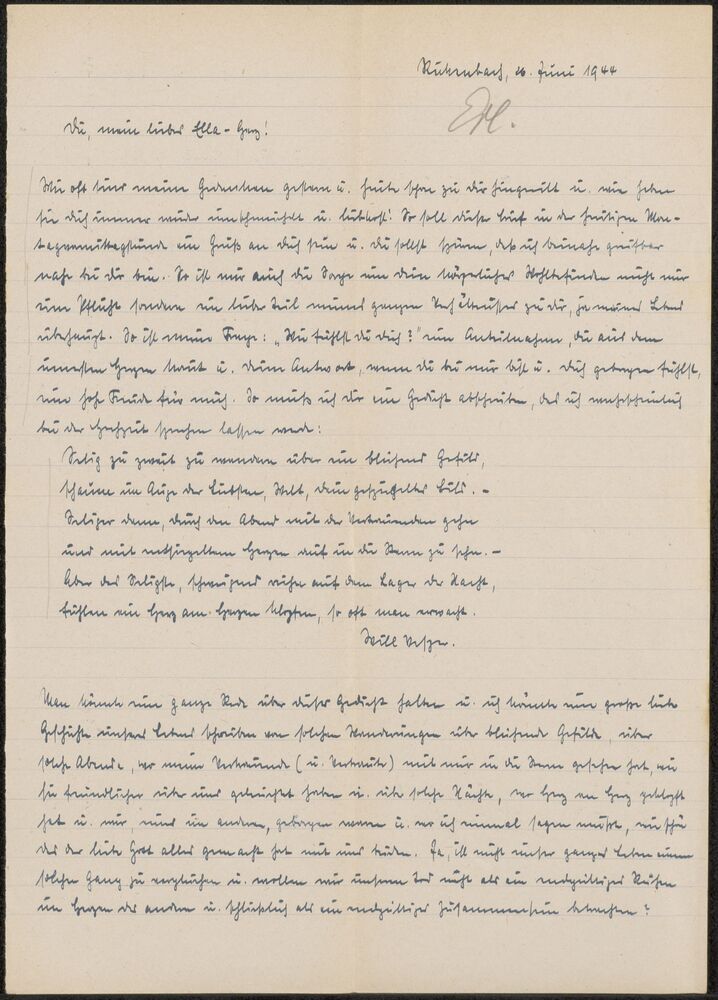 Rickenbach, 26. Juni 1944
Erl.
Du, mein liebes Ella-Herz!
Wie oft sind meine Gedanken gestern u. heute schon zu Dir hingeeilt u. wie haben
sie Dich immer wieder umschmeichelt u. liebkost! So soll dieser Brief in der heutigen Mon-
tagvormittagstunde ein Gruß an Dich sein u. Du sollst spüren, daß ich beinahe greifbar
nahe bei Dir bin. So ist mir auch die Sorge um Dein körperliches Wohlbefinden nicht nur
eine Pflicht sondern ein lieber Teil meines ganzen Verhältnisses zu Dir, ja meines Lebens
überhaupt. So ist meine Frage: „Wie fühlst Du Dich?" eine Anteilnahme, die aus dem
innersten Herzen kommt u. Deine Antwort, wenn Du bei mir bist u. Dich geborgen fühlst,
eine hohe Freude für mich. So muß ich Dir ein Gedicht abschreiben, das ich wahrscheinlich
bei der Hochzeit sprechen lassen werde:
Selig zu zweit zu wandern über ein blühend Gefild,
schauen im Auge der Liebsten, Welt, dein gespiegeltes Bild. –
Seliger dann, durch den Abend mit der Vertrauenden gehn
und mit entsiegeltem Herzen auf in die Sterne zu sehn. –
Aber das Seligste, schweigend ruhn auf dem Lager der Nacht,
fühlen ein Herz am Herzen klopfen, so oft man erwacht.
Will Vesper.
Man könnte eine ganze Rede über dieses Gedicht halten u. ich könnte eine große liebe
Geschichte unseres Lebens schreiben von solchen Wanderungen über blühende Gefilde, über
solche Abende, wo meine Vertrauende (u. Vertraute) mit mir in die Sterne gesehen hat, wie
sie freundlicher über uns geleuchtet haben u. über solche Nächte, wo Herz an Herz geklopft
hat u. wir, eins im andern, geborgen waren u. wo ich einmal sagen mußte, wie schön
das der liebe Gott alles gemacht hat mit uns beiden. Ja, ist nicht unser ganzes Leben einem
solchen Gang zu vergleichen u. wollen wir unseren Tod nicht als ein endgültiges Ruhen
im Herzen des andern u. schließlich als ein endgültiges Zusammensein betrachten?